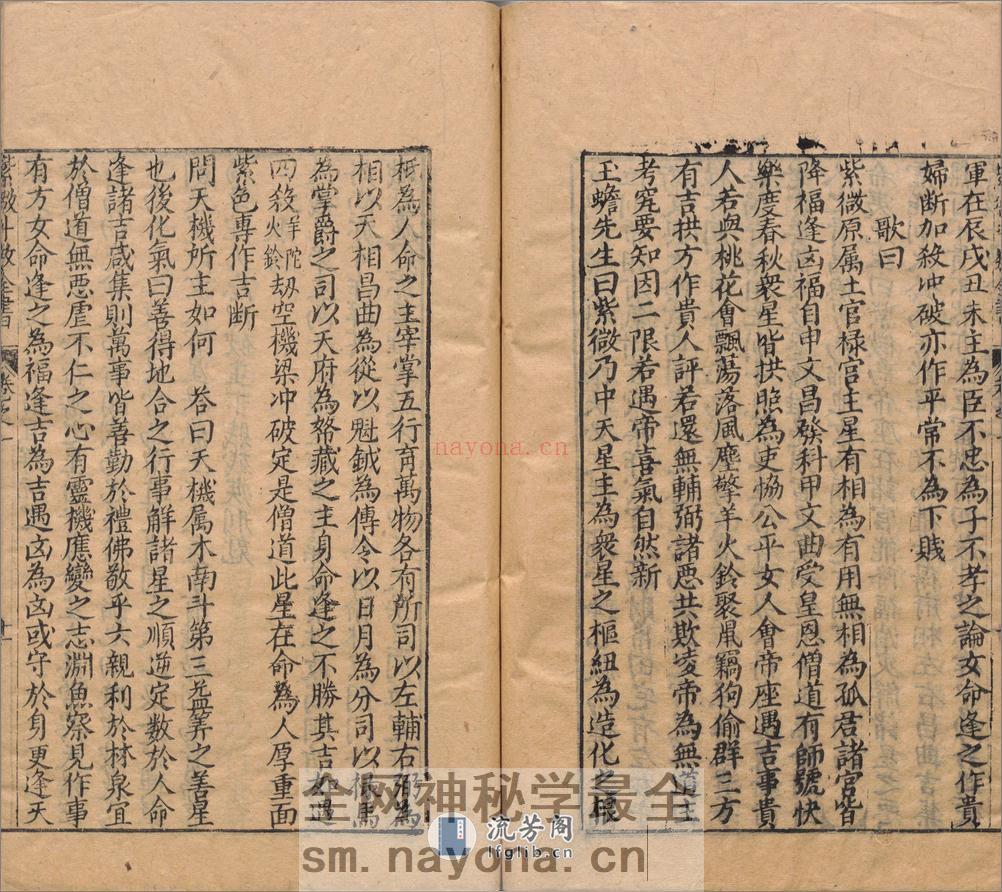 軍在辰戌丑未主為臣不忠為子不孝之論女命逢之作貴
婦斷加殺冲破亦作平常不為下賤
歌曰
紫微原属土官禄宫主星有相為有用無相為孤君諸宫皆
降福逢凶福自申文昌發科甲文曲受皇恩僧道有師號快
樂度春秋衆星皆拱照為吏恊公平女人會帝座遇吉事貴
人若與桃花會飄蕩落風塵擎羊火鈴聚鼠竊狗偷群三方
有吉拱方作貴人評若還無輔弼諸惡共欺凌帝為無道主
考究要知因二限若遇帝喜氣自然新
玉蟾先生曰紫微乃中天星主為衆星之樞紐為造化之根
柢為人命之主宰掌五行育萬物各有所司以左輔右弼為
相以天相昌曲為從以魁鉞為傳令以日月為分司以禄馬
為掌爵之司以天府為帑藏之主身命逢之不勝其吉如遇
四殺羊陀火鈴劫空機梁冲破定是僧道此星在命為人厚重面
紫色專作吉斷
問天機所主如何 荅曰天機属木南斗第三益筭之善星
也後化氣曰善得地合之行事解諸星之順逆定數於人命
逢諸吉咸集則萬事皆善勤於禮佛敬乎六親利於林泉宜
於僧道無惡虐不仁之心有靈機應變之志淵魚察見作事
有方女命逢之為福逢吉為吉遇凶為凶或守於身更逢天
紫微斗數全書 卷之一
nayona.cn
全网神秘学最全
sm.nayona.cn
流芳阁
lfglib.cn